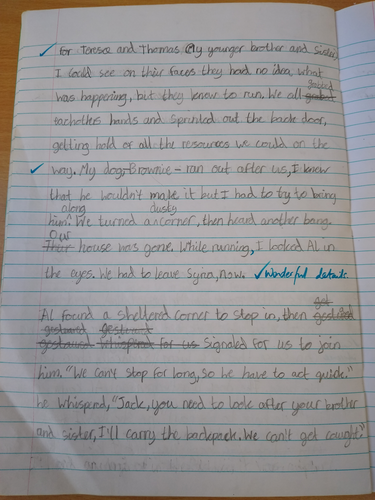 ✓ for Teresa and Thomas (My younger brother and Sister,
I could see on their faces they had no idea, what
was happening, but they knew to run. We all grabed
eachothers hands and sprinted out the back door,
getting hold of all the resources we could on the
✓ way. My dog-Brownie - ran out after us, I knew
that he wouldn't make it but I had to try to bring
along dusty
him. We turned a corner, then heard another bang.
Our
Their house was gone. While running, I looked Al in
the eyes. We had to leave Syria, now. ✓ Wonderful details.
Al found a sheltered corner to stop in, then
gestured gestured
gestured whispered for us signaled for us to join
him. "We can't stop for long, so we have to act quick."
he whisperd, "Jack, you need to look after your brother
and sister, I'll carry the backpack. We can't get caught"